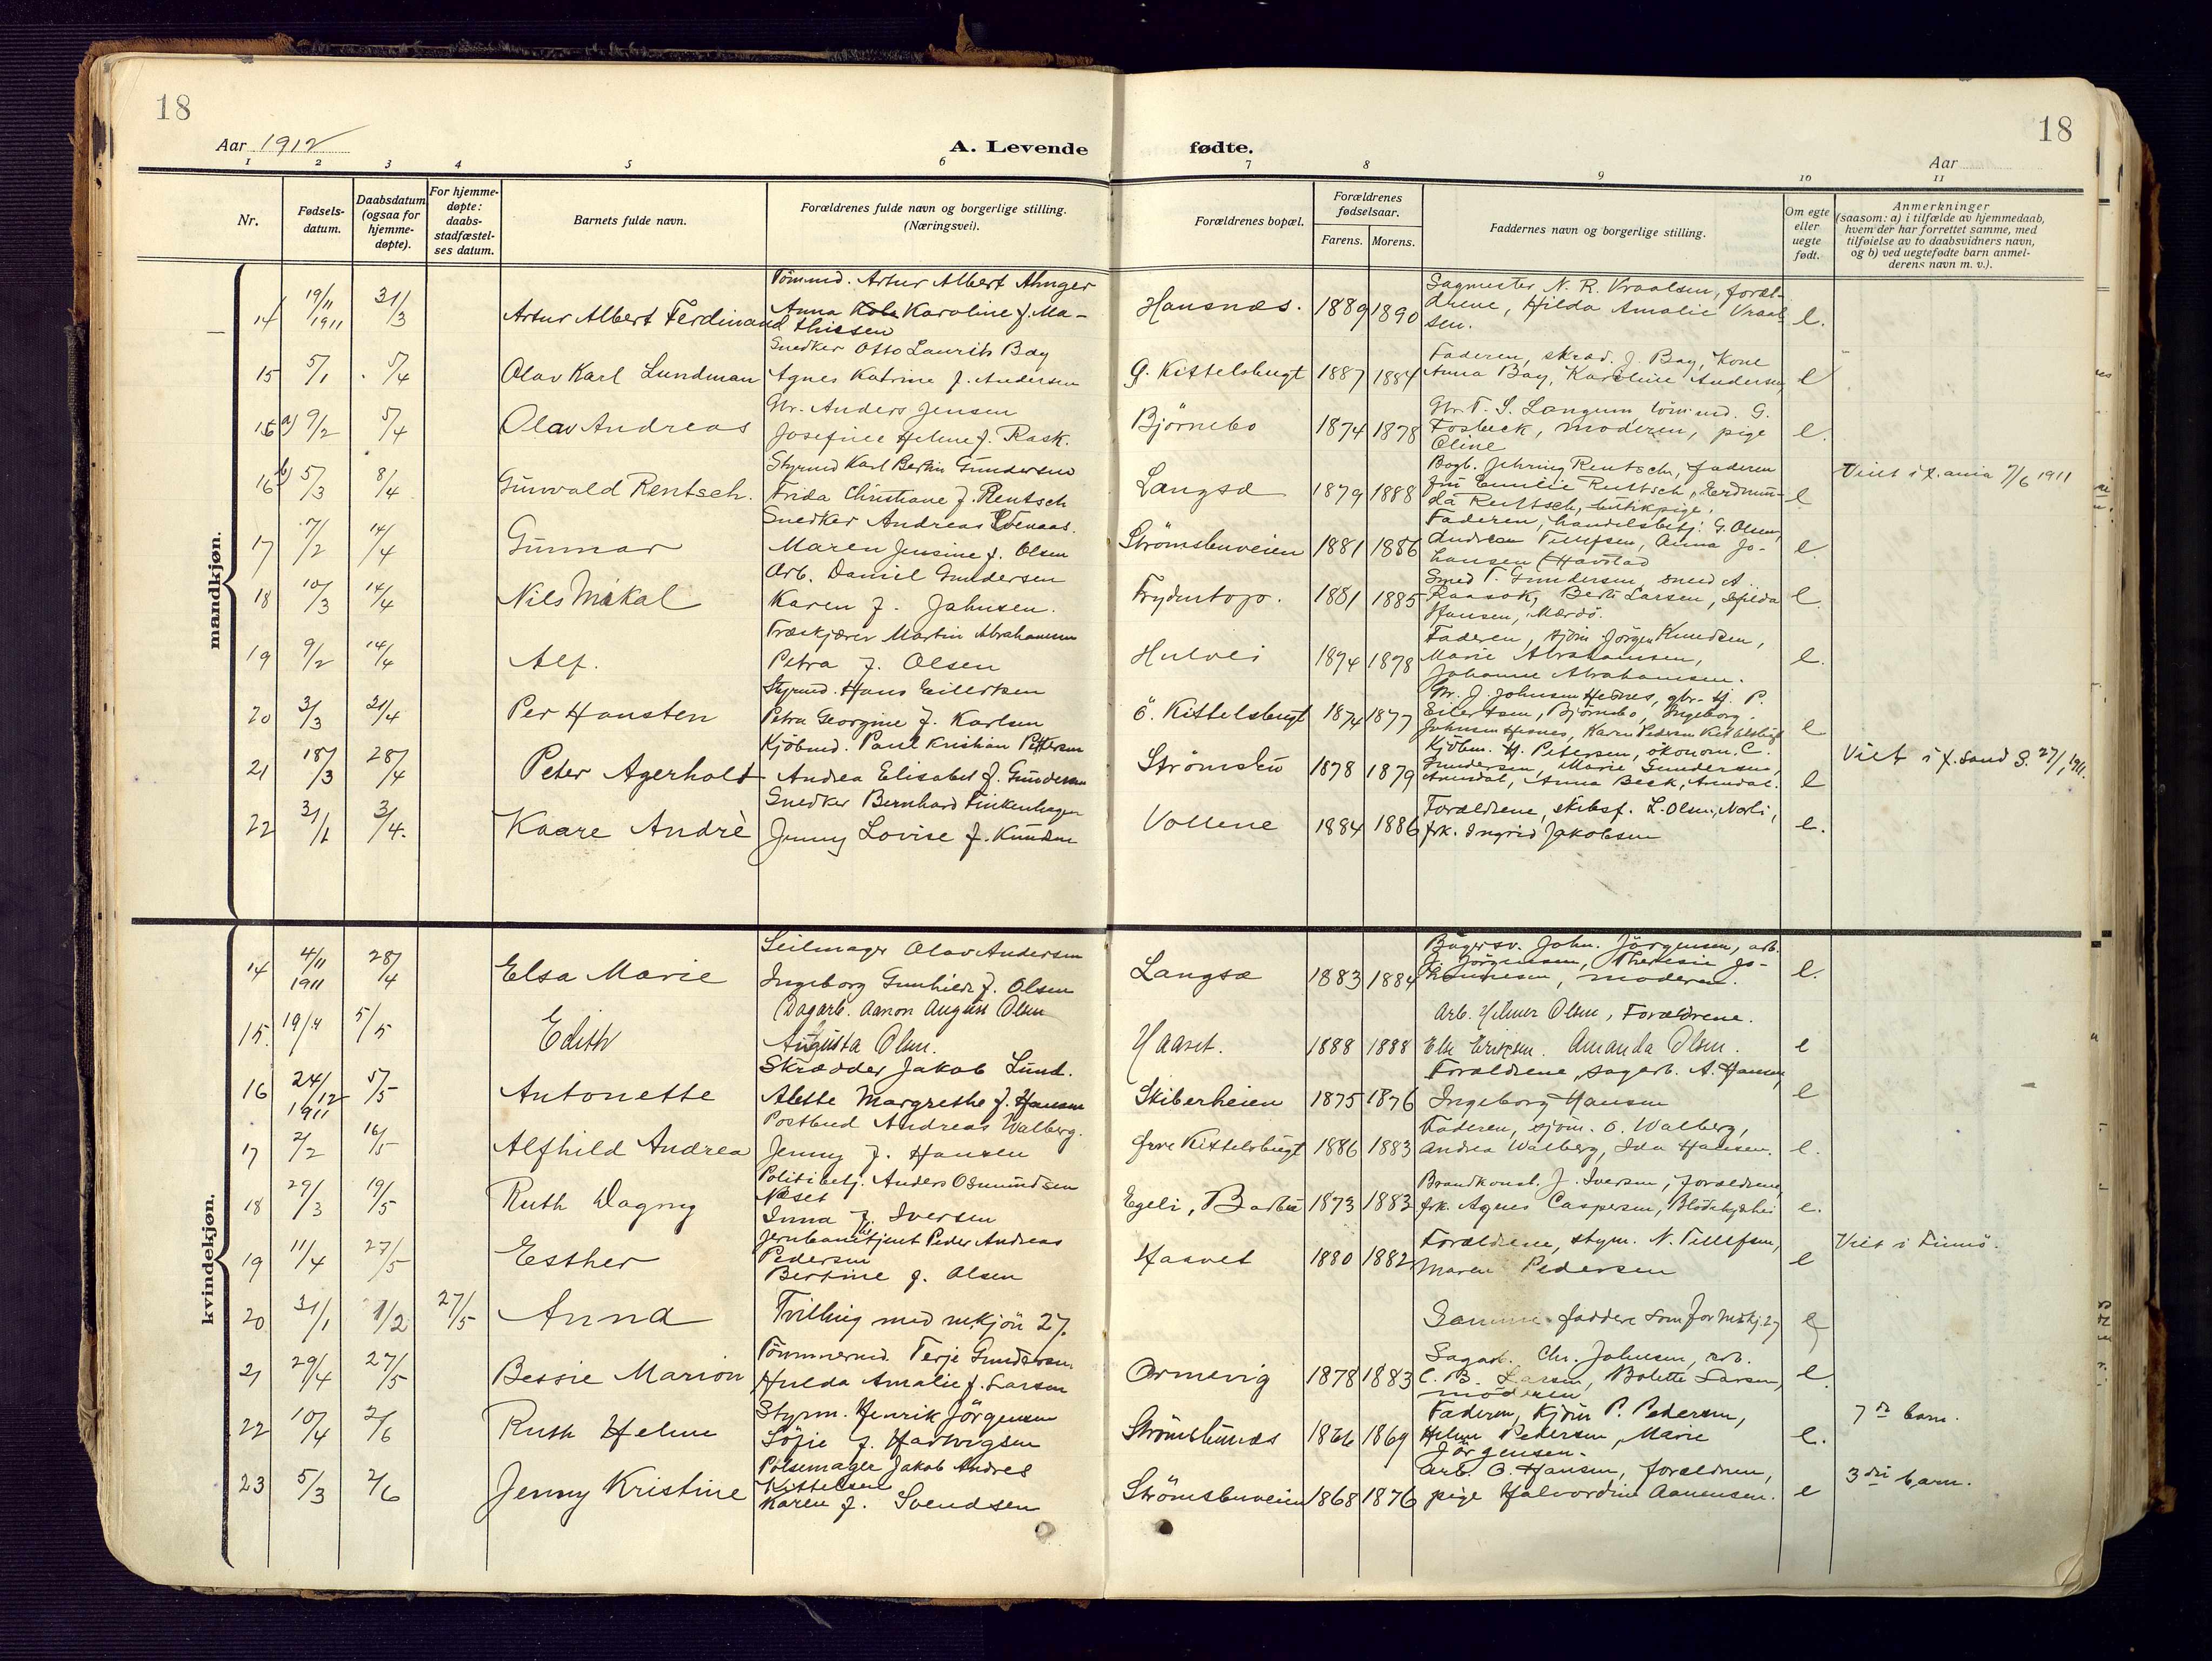 18
18
Aar 1912
A. Levende
fødte.
Aar
1 2 3 4 5 6 7 8 9 10 11
Nr.
Fødsels-
datum.
Daabsdatum
(ogsaa for
hjemme-
døpte).
For hjemme-
døpte:
daabs-
stadfæstel-
ses datum.
Barnets fulde navn.
Forældrenes fulde navn og borgerlige stilling.
(Næringsvei).
Forældrenes bopæl.
Forældrenes
fødselsaar.
Farens. Morens.
Faddernes navn og borgerlige stilling.
Om egte
eller
uegte
født.
Anmerkninger
(saasom: a) i tilfælde av hjemmedaab,
hvem der har forrettet samme, med
tilføielse av to daabsvidners navn,
og b) ved uegtefødte barn anmel-
derens navn m. v.).
mandkjøn.
14 19/11 1911 31/3 Artur Albert Ferdinand
Tömmd. Artur Albert Ahnger
Anna Karoline f. Ma-
thisen
Hausnæs. 1889 1890
Sagmester N. R. Vraalsen, foræl-
drene, Hilda Amalie Vraal-
sen.
e.
15 5/1 5/4 Olav Karl Lundman
Snedker Otto Laurits Bay
Agnes Katrine f. Andersen
G. Kittelsbugt 1887 1884
Faderen, skræd. J. Bay, Kone
Anna Bay, Karoline Andersen,
e
16 a) 9/2 5/4 Olav Andreas
Gbr. Anders Jensen
Josefine Helene f. Rask.
Björnebo 1874 1878
Gbr. T. S. Langum, tömmd. G.
Fosbeck, moderen, pige
Oline
e.
16 b) 5/3 8/4 Gunvald Rentsch.
Styrmd Karl Bertin Gundersen
Frida Christiane f. Rentsch
Langsæ 1879 1888
Bogb. Jehring Rentsch, faderen
fru Emilie Rentsch, Erdmun-
da Rentsch, butikpige.
e
Viet i X.ania 7/6 1911
17 7/2 14/4 Gunnar
Snedker Andreas
Maren Jensine f. Olsen
Strömsbuveien 1881 1886
Faderen, handelsbetj. G. Olsen,
Andrea Tellefsen, Anna Jo-
hansen (Havstad
e.
18 10/3 14/4 Nils Mikal
Arb. Daniel Gundersen
Karen f. Jahnsen.
Frydentopp. 1881 1885
Smed T. Gundersen, smed A.
Raasok, Berti Larsen, Hilda
Hansen, Mærdö.
e.
19 9/2 14/4 Alf.
Træskjærer Martin Abrahamsen
Petra f. Olsen
Hulvei 1874 1878
Faderen, sjöm Jörgen Knudsen,
Marie Abrahamsen,
Johanne Abrahamsen.
e.
20 3/3 21/4 Per Hansten
Styrmd. Hans Eilertsen
Petra Georgine f. Karlsen
ö. Kittelsbugt 1874 1877
Gbr. J. Johnsen Hesnes, gbr. Hj. P.
Eilertsen, Björnebo, Ingeborg
Johnsen Hesnes, Karn Pedersen Kittelsbugt
e
21 18/3 28/4 Peter Agerholt
Kjöbmd. Paul Kristian Pettersen
Andrea Elisabet f. Gundersen
Strömsbu 1878 1879
Kjöbm. H. Petersen, ökonom. C.
Gundersen, Marie Gundersen,
Arendal, Anna Beck, Arendal.
e
Viet i X.sand S. 27/1 1911.
22 31/1 3/4. Kaare Andrè
Snedker Bernhard Finkenhagen
Jenny Lovise f. Knudsen
Vollene 1884 1886
Forældrene, skibsf. L. Olsen, Norli,
frk. Ingrid Jakobsen
e.
kvindekjøn.
14 4/11 1911 28/4 Elsa Marie
Seilmager Olav Andersen
Ingeborg Gunhilde f. Olsen
Langsæ 1883 1884
Bagersv. John. Jörgensen, arb.
J. Jörgensen, Theresie Jo-
hannesen, moderen.
e.
15. 19/4 5/5 Edith
Dagarb. Aanon August Olsen
Augusta Olsen.
Haavet. 1888 1888
Arb. Hilmer Olsen, Forældrene.
Else Eriksen. Amanda Olsen.
e
16 24/12 1911 5/5 Antonette
Skrædder Jakob Lund.
Alette Margrethe f. Hansen
Skiberheien 1875 1876
Forældrene, sagarb. A. Hansen,
Ingeborg Hansen
e
17 2/2 16/5 Alfhild Andrea
Postbud Andreas Walberg.
Jenny f. Hansen
Övre Kittelsbugt 1886 1883
Faderen, sjöm. O. Walberg,
Andrea Walberg, Ida Hansen.
e.
18 29/3 19/5 Ruth Dagny
Politibetj. Anders Osmundsen
Næset
Inna f. Iversen
Egeli, Barbu 1873 1883
Brandkonst. J. Iversen, forældrene,
frk. Agnes Caspersen, Blödekjærhei
e.
19 11/4 27/5 Esther
Jernbanebetjent Peder Andreas
Pedersen
Bertine f. Olsen
Haavet 1880 1882
Forældrene, styrm. N. Tellefsen,
Maren Pedersen
e
Viet i Finnö.
20 31/1 1/2 27/5 Anna
Tvilling med mkjön 27.
Samme faddere som for mkj. 27
e
21 29/4 27/5 Bessie Marion
Tömmermd. Terje Gundersen.
Hulda Amalie f. Larsen
Ormevig 1878 1883
Sagarb. Chr. Johnsen, arb.
C. B. Larsen, Bolette Larsen,
moderen
e.
22 10/4 2/6 Ruth Helene
Styrm. Henrik Jörgensen
Söfie f. Hartvigsen
Strömsbunæs 1866 1869
Faderen, Kjörer P. Pedersen,
Helene Pedersen, Marie
Jörgensen.
e.
7de barn.
23 5/3 2/6 Jenny Kristine
Pölsemager Jakob Andres
Kittelsen
Karen f. Svendsen
Strömsbuveien 1868 1876
Arb. O. Hansen, forældrene,
pige Halvordine Aanensen.
e
3die barn.